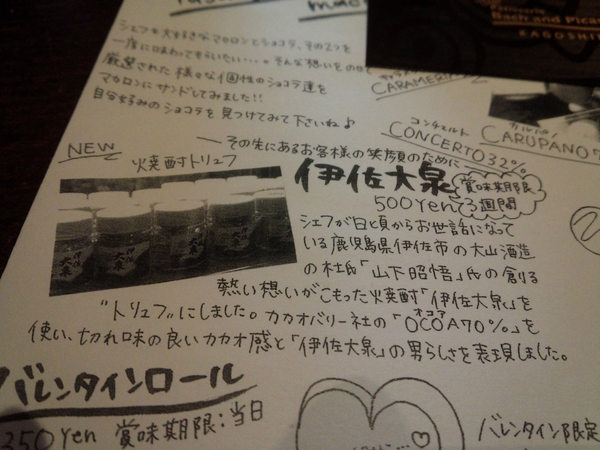 Bach and Pica
KAGOSHI
シェフも大好きなマカロンとショコラ、その2つを
一度に味わってもらいたい…。そんな想いをのせ
厳選された様々な個性のショコラ達を
マカロンにサンドしてみました!!
自分好みのショコラを見つけてみて下さいね♪
CARAMER
コンチェルト
CONCERTO32%
カルパノ
CARUPANO7
―その先にあるお客様の笑顔のために―
NEW
火焼酎トリュフ
伊佐大泉
賞味期限
3週間
500yen
シェフが日頃からお世話になって
いる鹿児島県伊佐市の大山酒造
の杜氏「山下昭悟」氏の創る
熱い想いがこもった火焼酎「伊佐大泉」を
"トリュフ"にしました。カカオバリー社の「OCOA70%」を
オコア
使い、切れ味の良いカカオ感と「伊佐大泉」の男らしさを表現しました。
バレンタインロール
350yen 賞味期限:当日
バレンタイン限定